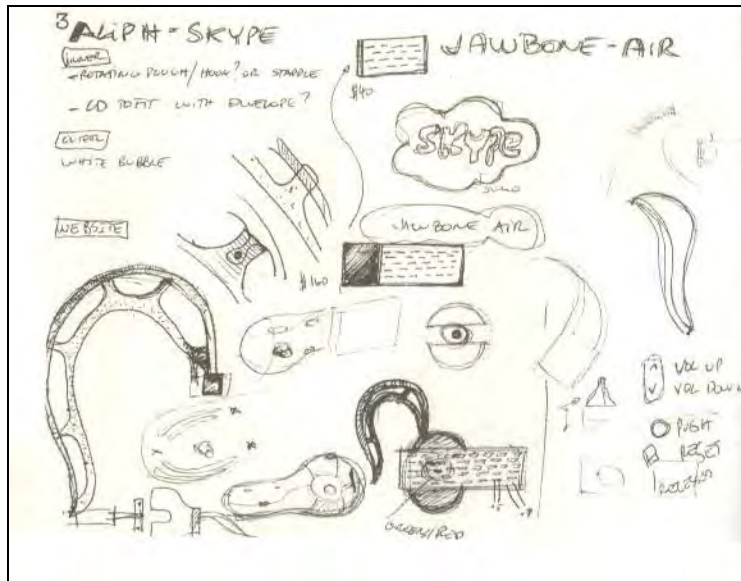 3
ALIPH - SKYPE
INNER
- ROTATING PLUGH/HOOK? OR STAPPLE
- CD TO FIT WITH ENVELOPE?
OUTER
WHITE BUBBLE
WEBSITE
JAWBONE - AIR
$40
SKYPE
JAWBONE AIR
$160
VOL UP
VOL DOWN
PUSH
RESET
GREEN/RED